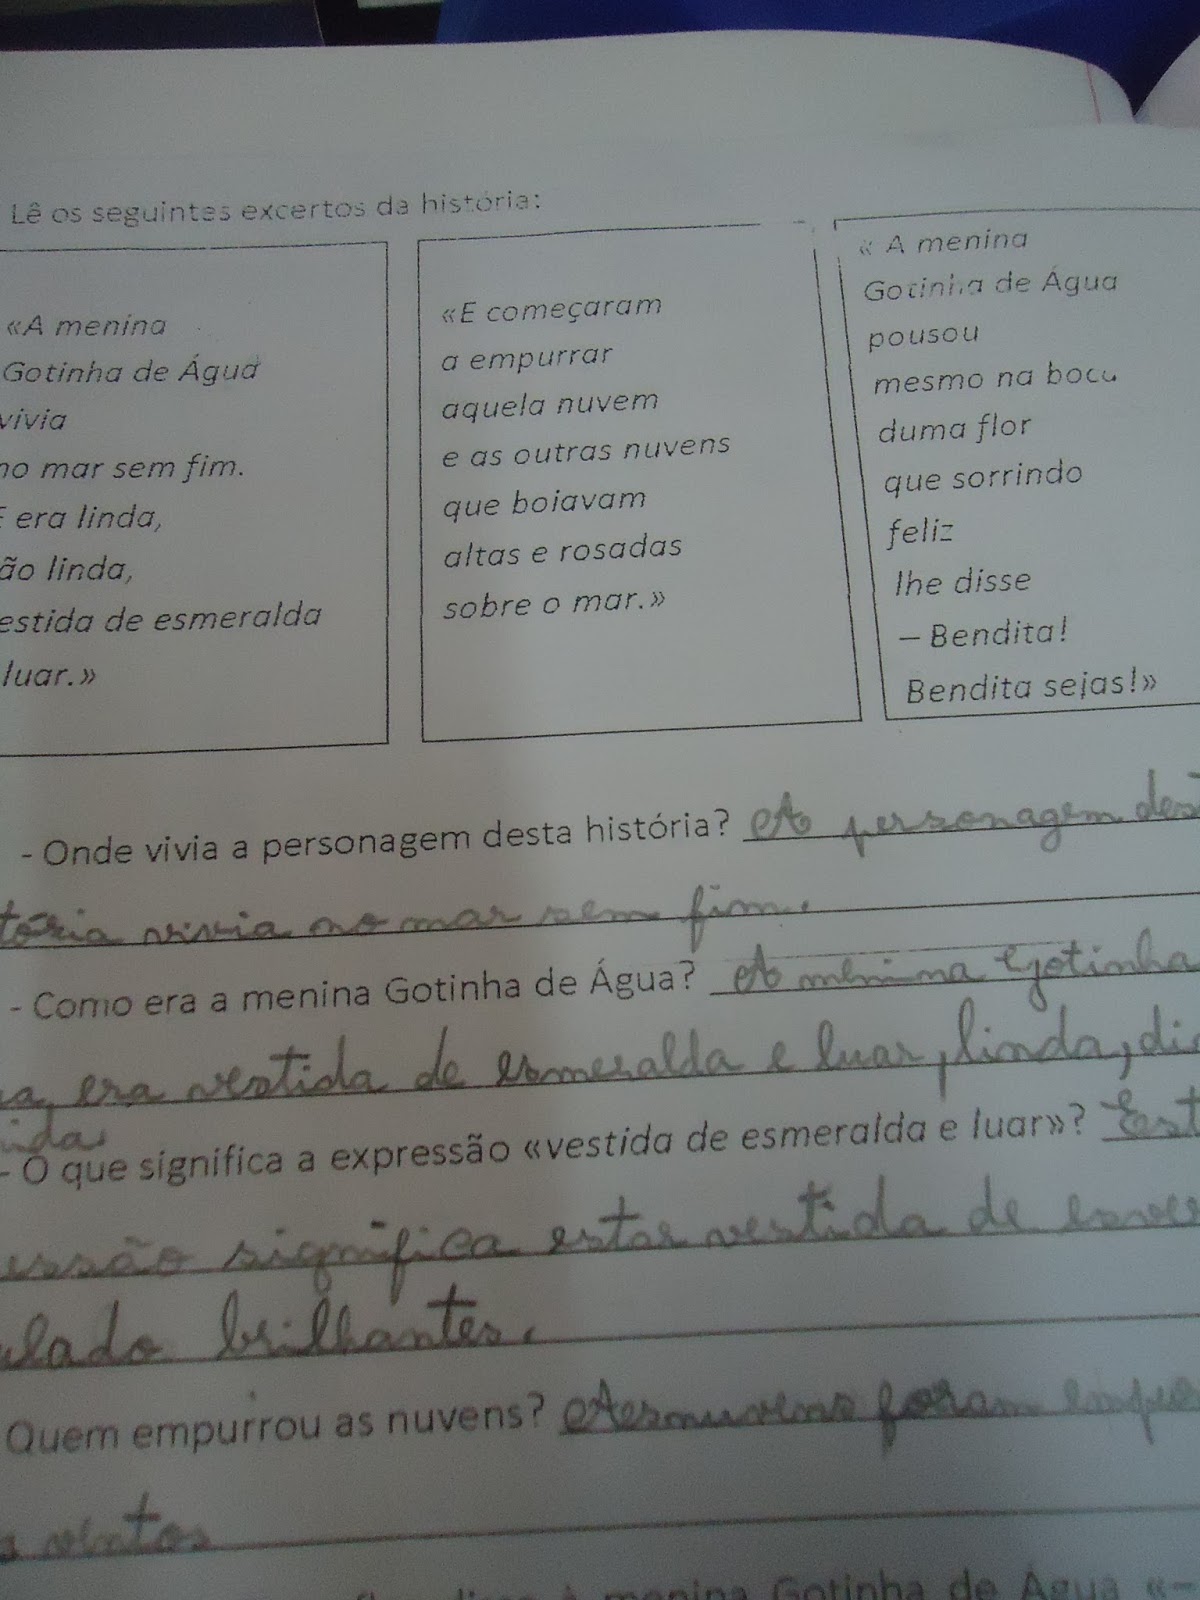 Lê os seguintes excertos da história:
«A menina
Gotinha de Água
vivia
no mar sem fim.
E era linda,
ão linda,
estida de esmeralda
luar.»
«E começaram
a empurrar
aquela nuvem
e as outras nuvens
que boiavam
altas e rosadas
sobre o mar.»
« A menina
Gotinha de Água
pousou
mesmo na boca
duma flor
que sorrindo
feliz
lhe disse
– Bendita!
Bendita sejas!»
- Onde vivia a personagem desta história? A personagem des
tória vivia no mar sem fim.
- Como era a menina Gotinha de Água? A menina Gotinha
a, era vestida de esmeralda e luar, linda, di
ida
- O que significa a expressão «vestida de esmeralda e luar»? Est
essão significa estar vestida de esver
ulado brilhantes.
Quem empurrou as nuvens? As nuvens foram empu
s
menina Gotinha de Água «–